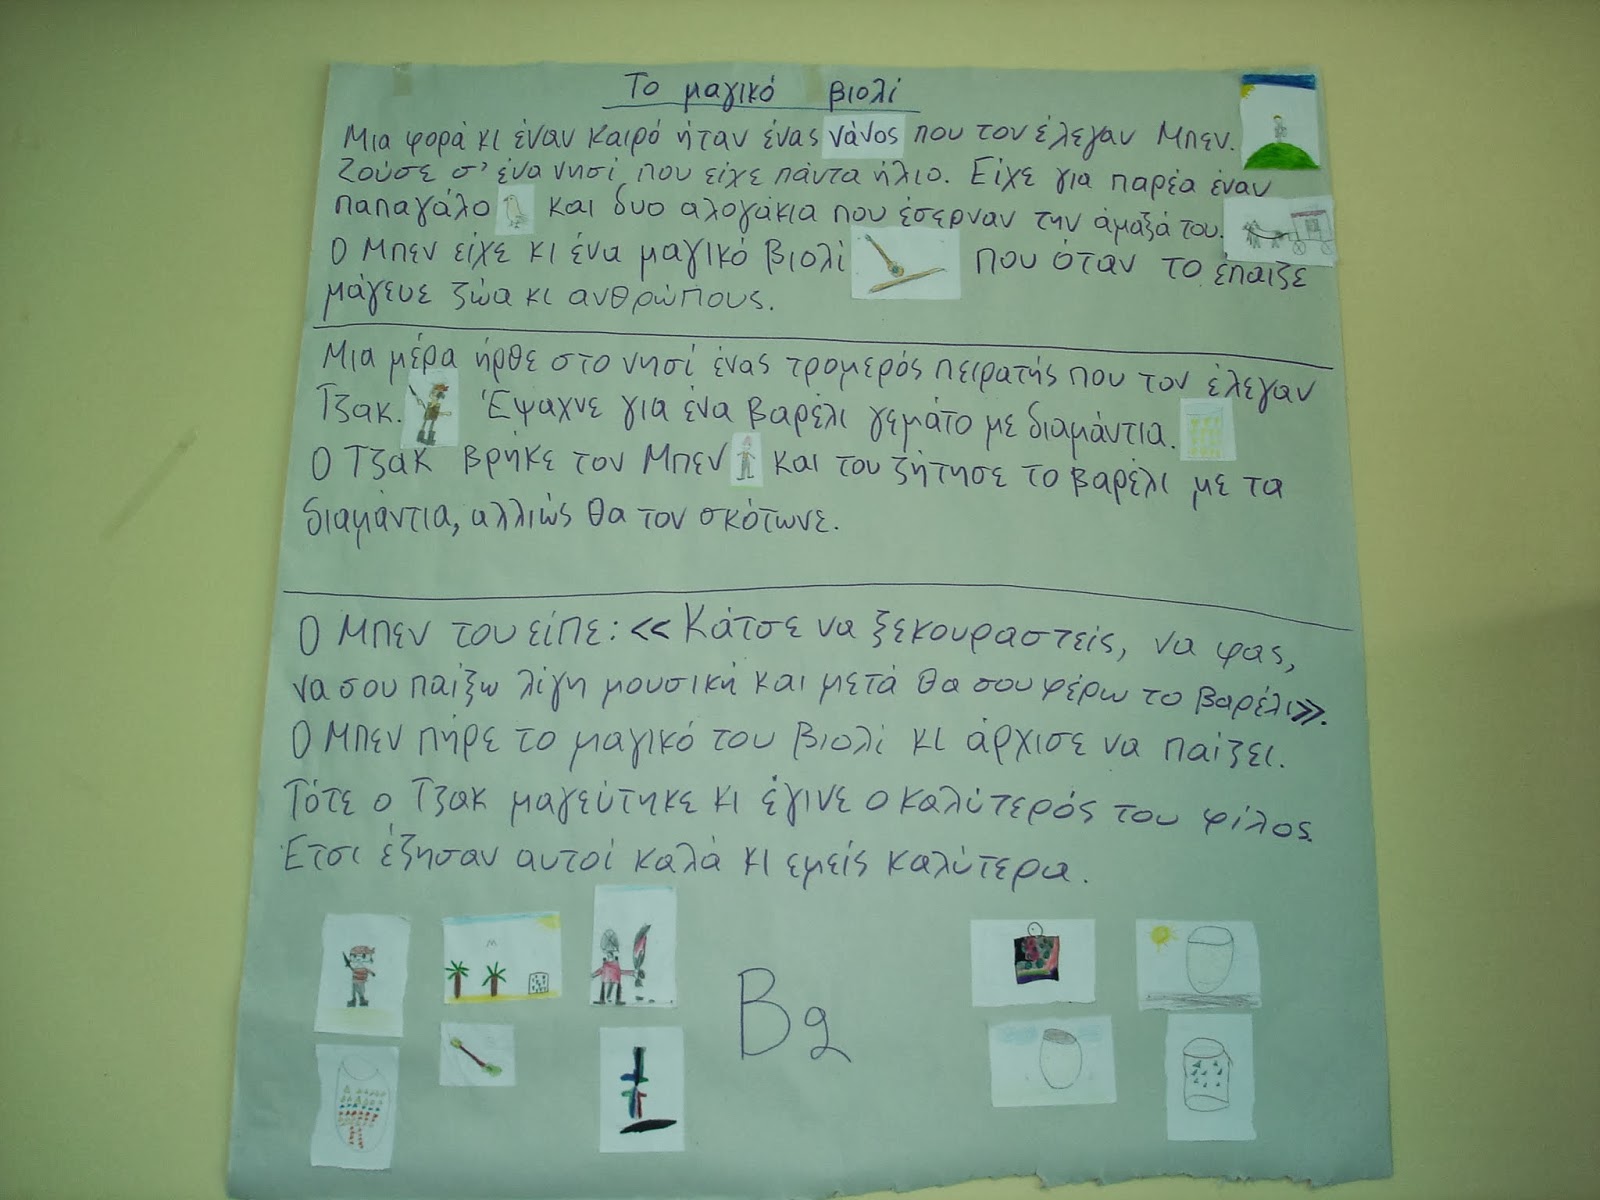 Το μαγικό βιολί
Μια φορά κι έναν καιρό ήταν ένας νάνος που τον έλεγαν Μπεν.
Ζούσε σ' ένα νησί που είχε πάντα ήλιο. Είχε για παρέα έναν
παπαγάλο και δυο αλογάκια που έσερναν την άμαξά του.
Ο Μπεν είχε κι ένα μαγικό βιολί που όταν το έπαιζε
μάγευε ζώα κι ανθρώπους.
Μια μέρα ήρθε στο νησί ένας τρομερός πειρατής που τον έλεγαν
Τζακ. Έψαχνε για ένα βαρέλι γεμάτο με διαμάντια.
Ο Τζακ βρήκε τον Μπεν και του ζήτησε το βαρέλι με τα
διαμάντια, αλλιώς θα τον σκότωνε.
Ο Μπεν του είπε: «Κάτσε να ξεκουραστείς, να φας,
να σου παίξω λίγη μουσική και μετά θα σου φέρω το βαρέλι».
Ο Μπεν πήρε το μαγικό του βιολί κι άρχισε να παίζει.
Τότε ο Τζακ μαγεύτηκε κι έγινε ο καλύτερός του φίλος.
Έτσι έζησαν αυτοί καλά κι εμείς καλύτερα.
Β2